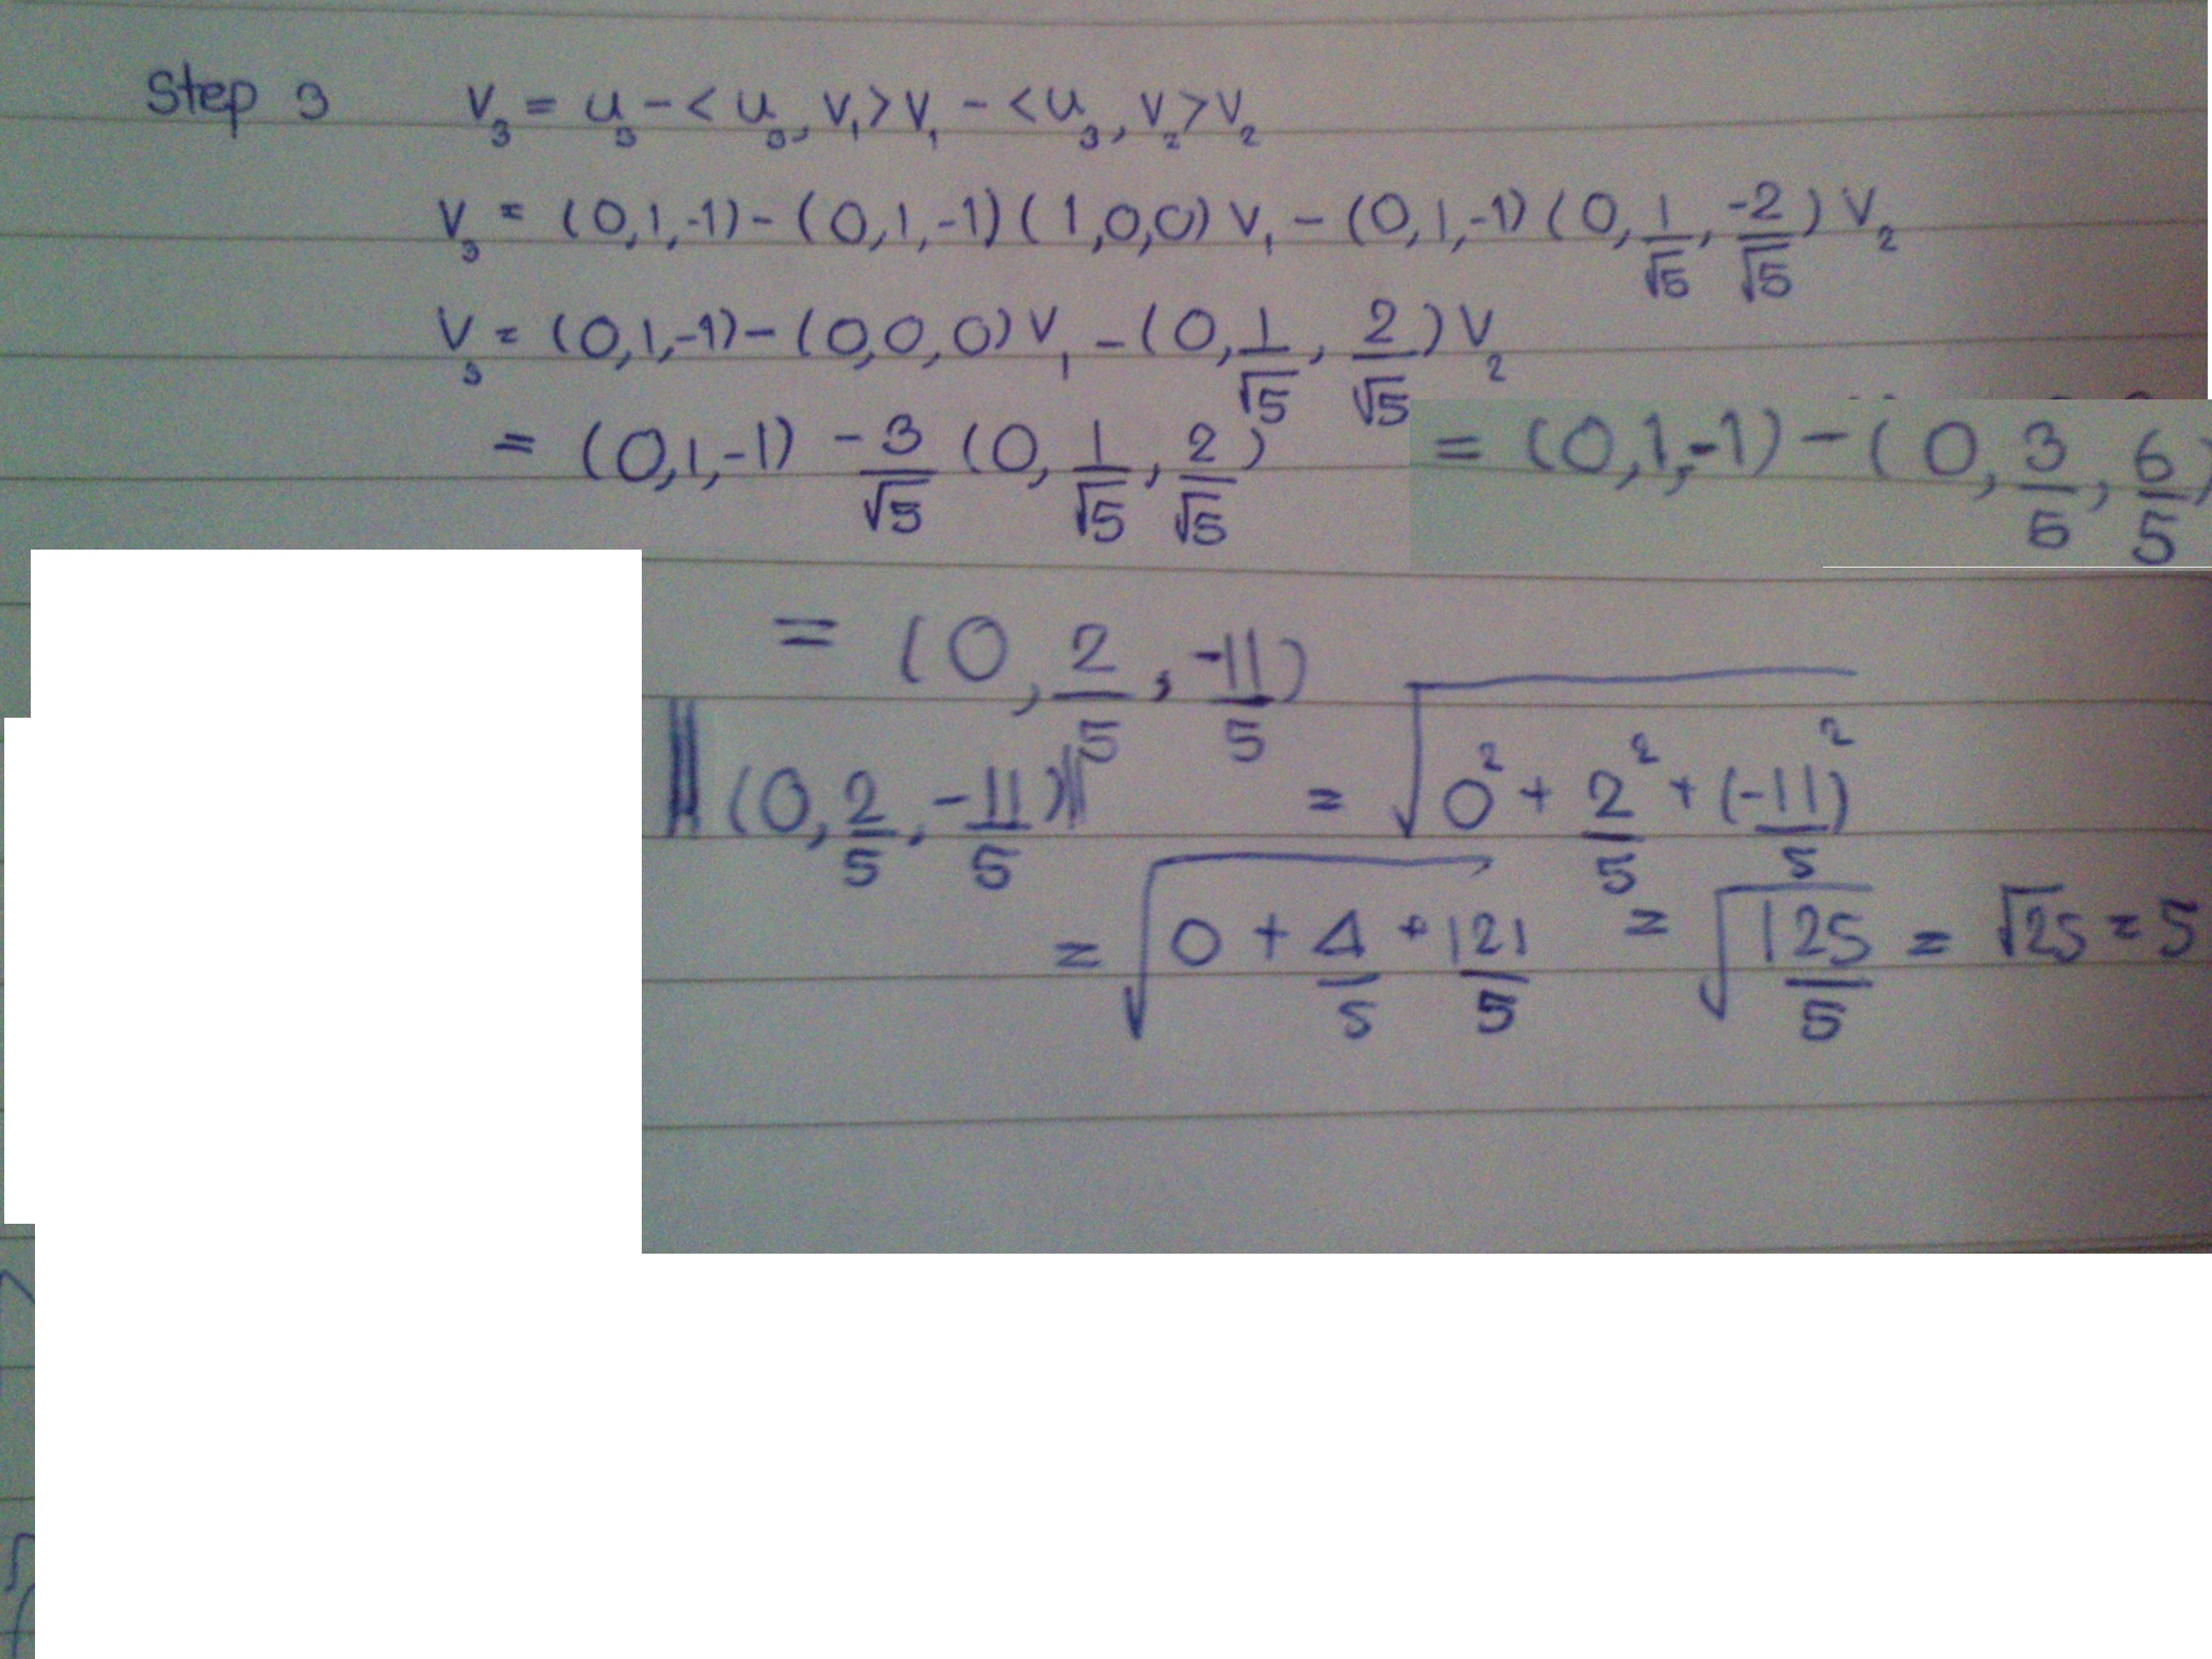 Step 3 V₃ = u₃ - < u₃, v₁> v₁ - <u₃, v₂> v₂
V₃ = (0,1,-1) - (0,1,-1) (1,0,0) v₁ - (0,1,-1) (0, 1/√5, -2/√5) V₂
V₃ = (0,1,-1) - (0,0,0) V₁ - (0, 1/√5, 2/√5) V₂
= (0,1,-1) - 3/√5 (0, 1/√5, 2/√5) = (0,1,-1) - (0, 3/5, 6/5)
= (0, 2/5, -11/5)
||(0, 2/5, -11/5)|| = √(0² + 2²/5 + (-11)²/5)
= √(0 + 4/5 + 121/5) = √(125/5) = √25 = 5